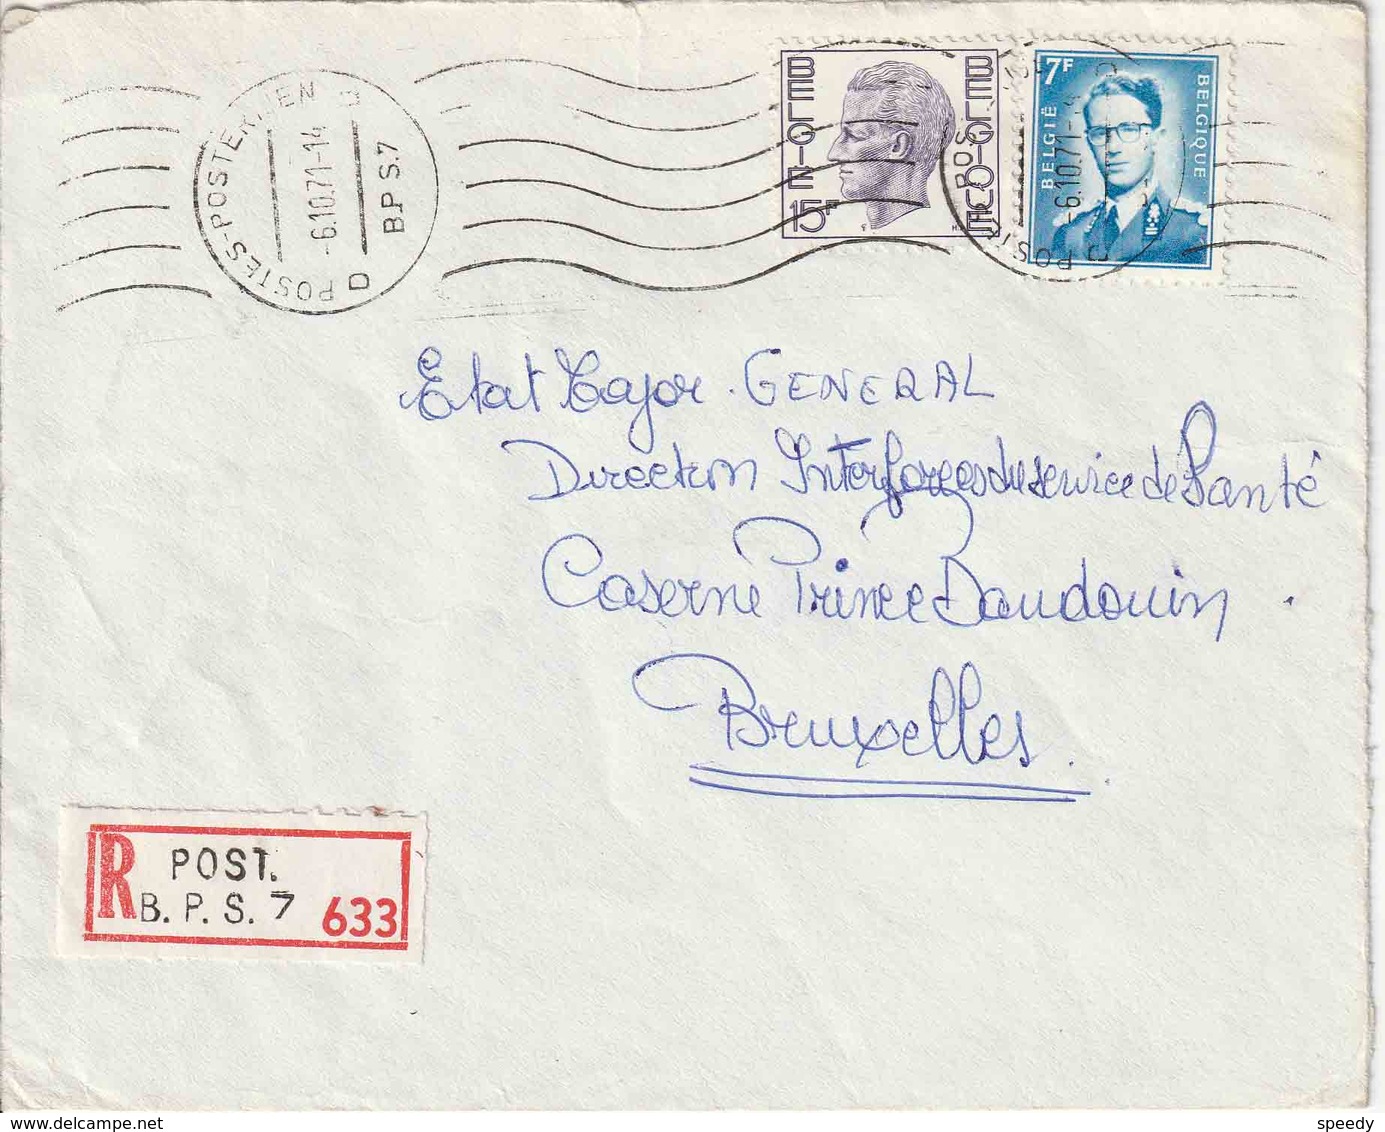 POSTES-POSTERIJEN
-6.10.71-14
D D
B.P.S.7
BELGIE
BELGIQUE
15F
7F
BELGIË
BELGIQUE
-6.10.71-
POSTE
Etat Major. GENERAL
Direction Interforces du service de Santé
Caserne Prince Baudouin.
Bruxelles.
R POST.
B. P. S. 7 633
delcampe.net
speedy